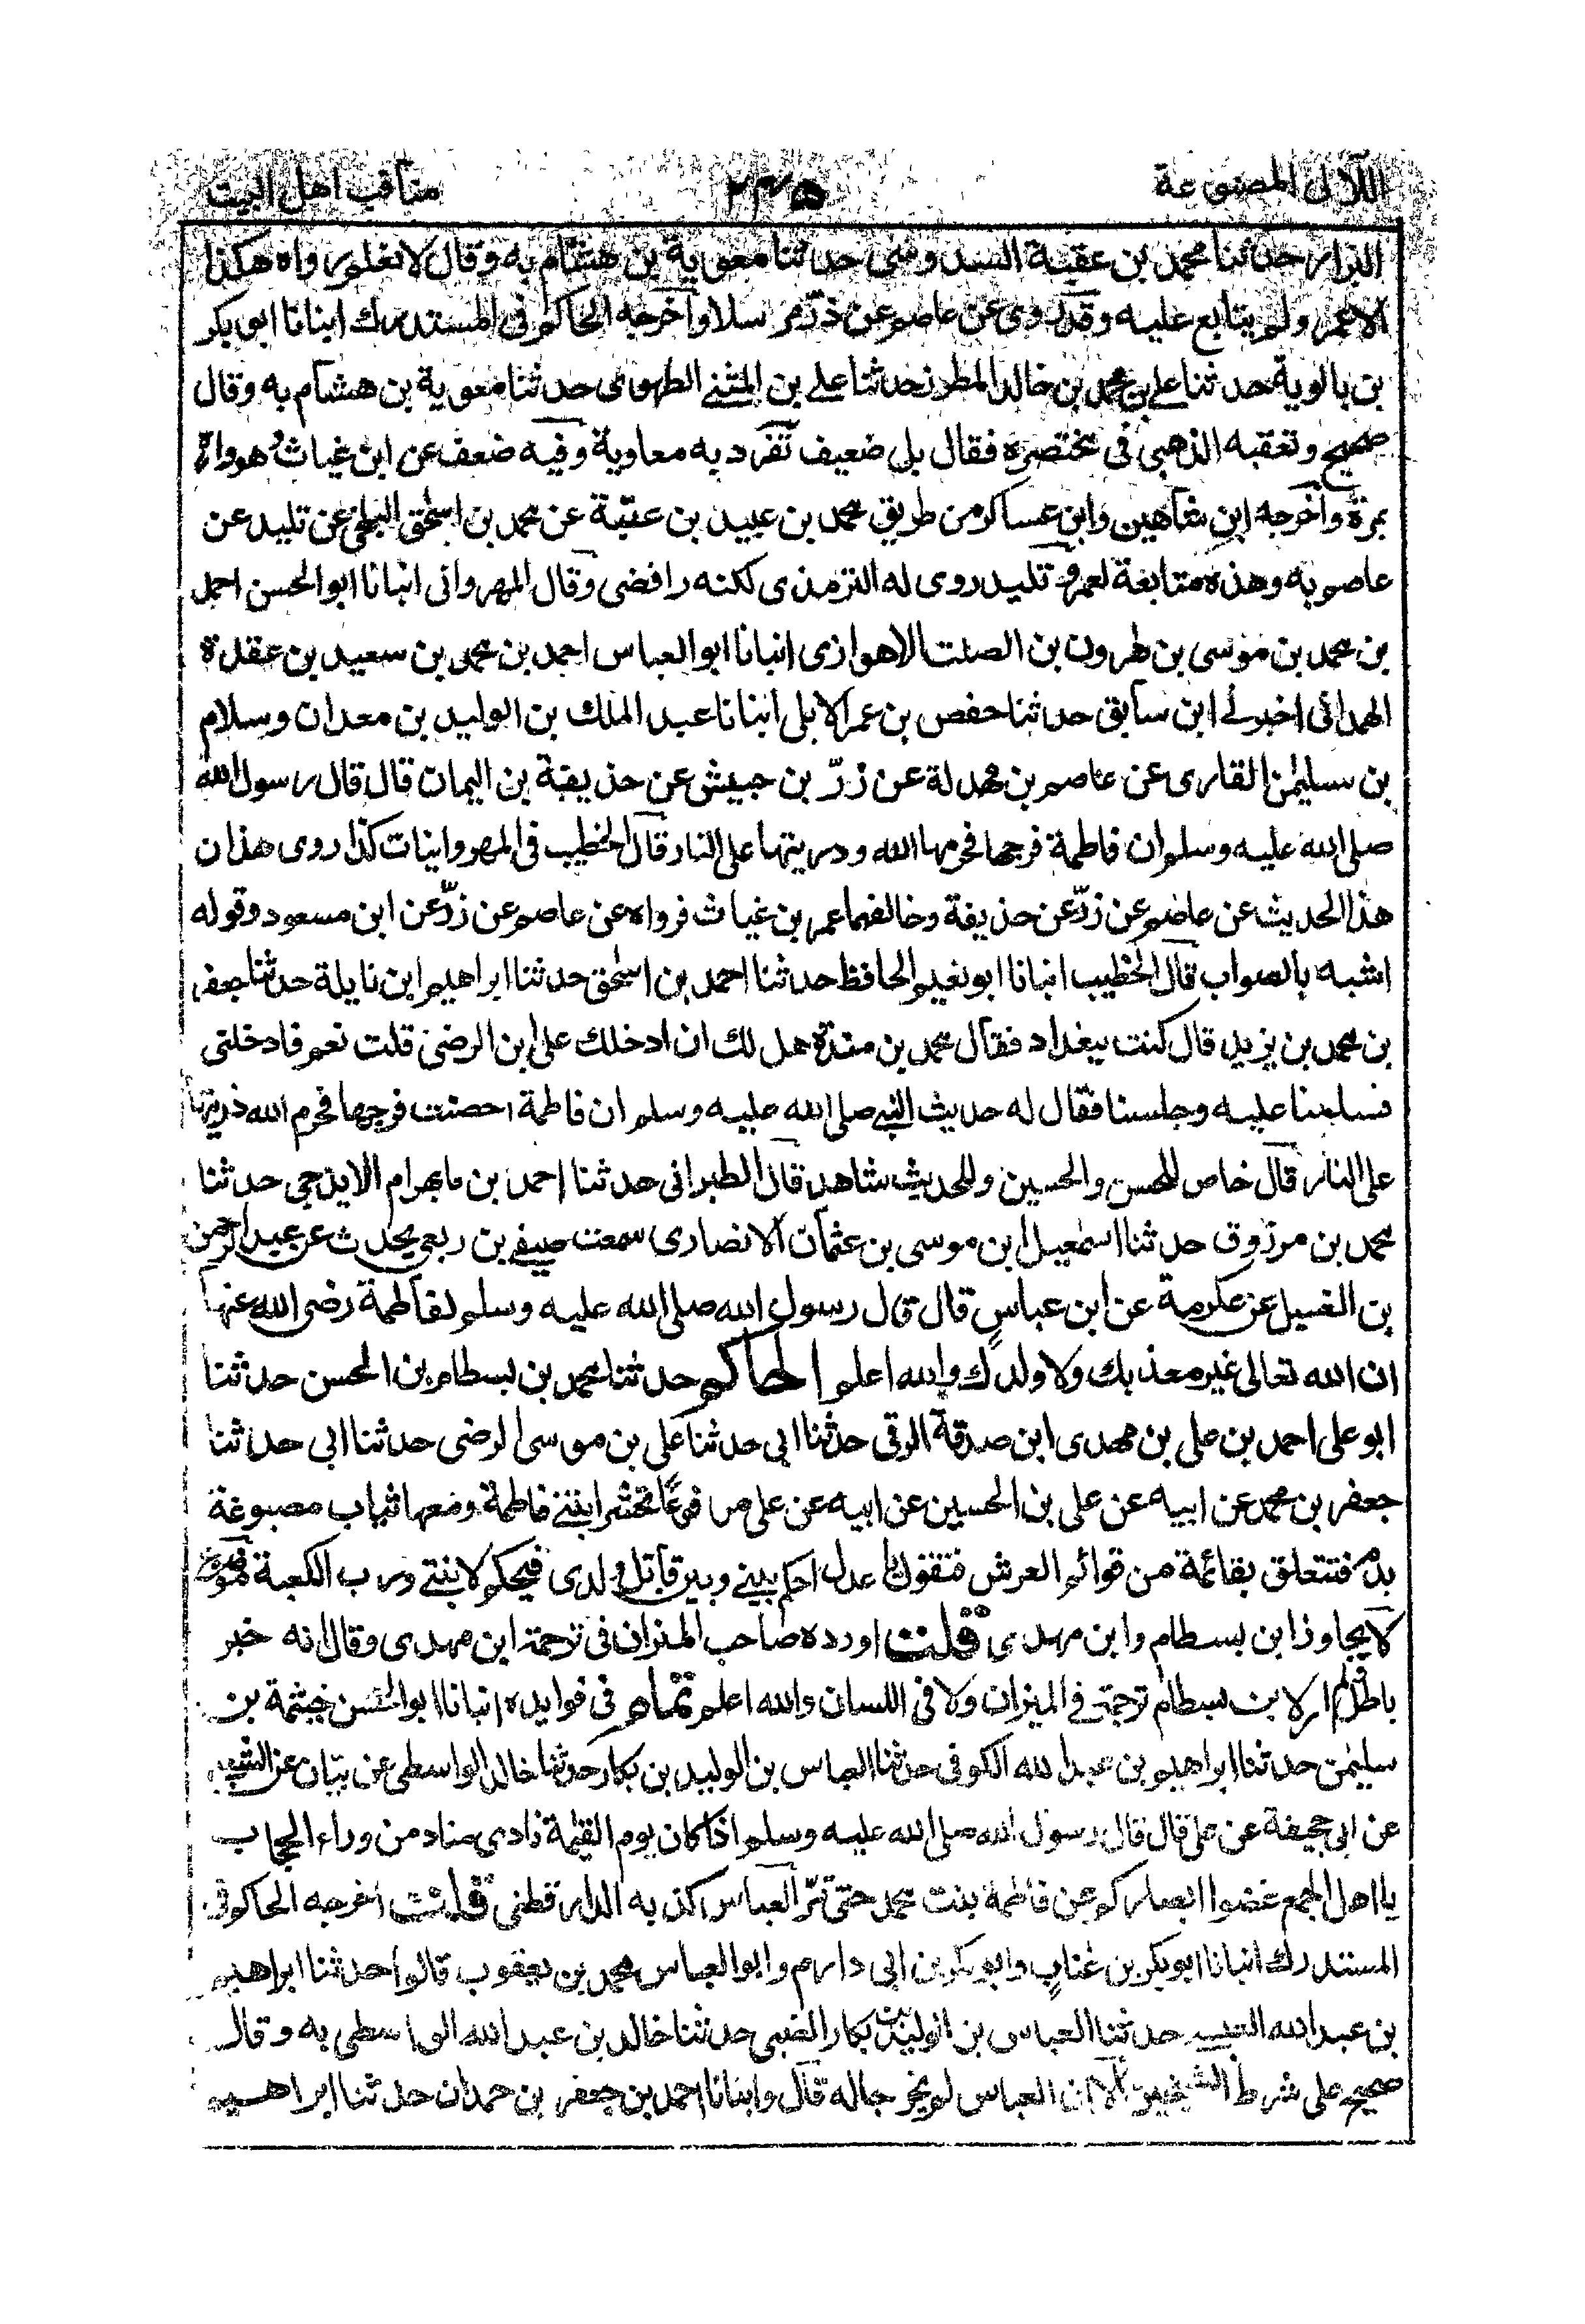 اللآلى المصنوعة ٢٣٥ مناقب اهل البيت
البزار حدثنا محمد بن عقبة السدوسى حدثنا معوية بن هشام به وقال لا نعلم رواه هكذا
الا عمر ولم يتابع عليه وقد روى عن عاصم عن ذرّ مرسلا واخرجه الحاكم فى المستدرك انبانا ابو بكر
بن بالوية حدثنا على بن محمد بن خالد المطرز حدثنا على بن المثنى الطهوى حدثنا معوية بن هشام به وقال
صحيح وتعقبه الذهبى فى مختصره فقال بلى ضعيف تفرد به معاوية وفيه ضعف عن ابن غياث وهو واه
بمرة واخرجه ابن شاهين وابن عساكر من طريق محمد بن عبيد بن عتبة عن محمد بن اسحق البلخى عن تليد عن
عاصم به وهذه متابعة لعمرو تليد روى له الترمذى لكنه رافضى وقال المهروانى انبانا ابو الحسن احمد
بن محمد بن موسى بن هرون بن الصلت الاهوازى انبانا ابو العباس احمد بن محمد بن سعيد بن عقدة
الهمدانى اخبرنى ابن سابق حدثنا حفص بن عمر الابلى انبانا عبد الملك بن الوليد بن معدان وسلام
بن سليمن القارى عن عاصم بن بهدلة عن زرّ بن حبيش عن حذيفة بن اليمان قال قال رسول الله
صلى الله عليه وسلم ان فاطمة فرجها فحرمها الله وذريتها على النار قال الخطيب فى المهروانيات كذا روى هذان
هذا الحديث عن عاصم عن زرّ عن حذيفة وخالفهما عمر بن غياث فرواه عن عاصم عن زرّ عن ابن مسعود وقوله
اشبه بالصواب قال الخطيب انبانا ابو نعيم الحافظ حدثنا احمد بن اسحق حدثنا ابراهيم ابن نايلة حدثنا جعفر
بن محمد بن يزيد قال كنت ببغداد فقال محمد بن مندة هل لك ان ادخلك على ابن الرضى قلت نعم فادخلنى
فسلمنا عليه وجلسنا فقال له حديث النبى صلى الله عليه وسلم ان فاطمة احصنت فرجها فحرم الله ذريتها
على النار قال خاص للحسن والحسين وللحديث شاهد قال الطبرانى حدثنا احمد بن مابهرام الايذجى حدثنا
محمد بن مرزوق حدثنا اسمعيل ابن موسى بن عثمان الانصارى سمعت صيفى بن ربعى يحدث عن عبد الرحمن
بن الغسيل عن عكرمة عن ابن عباسٍ قال قال رسول الله صلى الله عليه وسلم لفاطمة رضى الله عنها
ان الله تعالى غير معذبك ولا ولدك والله اعلم الحاكم حدثنا محمد بن بسطام بن الحسن حدثنا
ابو على احمد بن على بن مهدى ابن صدقة الرقى حدثنا ابى حدثنا على بن موسى الرضى حدثنا ابى حدثنا
جعفر بن محمد عن ابيه عن على بن الحسين عن ابيه عن على مرفوعًا تحشر ابنتى فاطمة ومعها ثياب مصبوغة
بدم فتتعلق بقائمة من قوائم العرش فتقول يا عدل احكم بينى وبين قاتل ولدى فيحكم لابنتى ورب الكعبة
لا يجاوز ابن بسطام وابن مهدى قلت اورده صاحب الميزان فى ترجمة ابن مهدى وقال انه خبر
باطل ولم ار لابن بسطام ترجمة فى الميزان ولا فى اللسان والله اعلم تمام فى فوايده انبانا ابو الحسن خيثمة بن
سليمن حدثنا ابراهيم بن عبد الله الكوفى حدثنا العباس بن الوليد بن بكار حدثنا خالد الواسطى عن بيان عن الشعبى
عن ابى جحيفة عن على قال قال رسول الله صلى الله عليه وسلم اذا كان يوم القيمة نادى مناد من وراء الحجاب
يا اهل الجمع غضوا ابصاركم عن فاطمة بنت محمد حتى تمرّ العباس كذبه الدارقطنى قلت اخرجه الحاكم فى
المستدرك انبانا ابو بكر بن عتابٍ وابو بكر بن ابى دارم وابو العباس محمد بن يعقوب قالوا حدثنا ابراهيم
بن عبد الله العبسى حدثنا العباس بن الوليد بن بكار الضبى حدثنا خالد بن عبد الله الواسطى به وقال
صحيح على شرط الشيخين الا ان العباس لم يخرجا له قال وانبانا احمد بن جعفر بن حمدان حدثنا ابراهيم